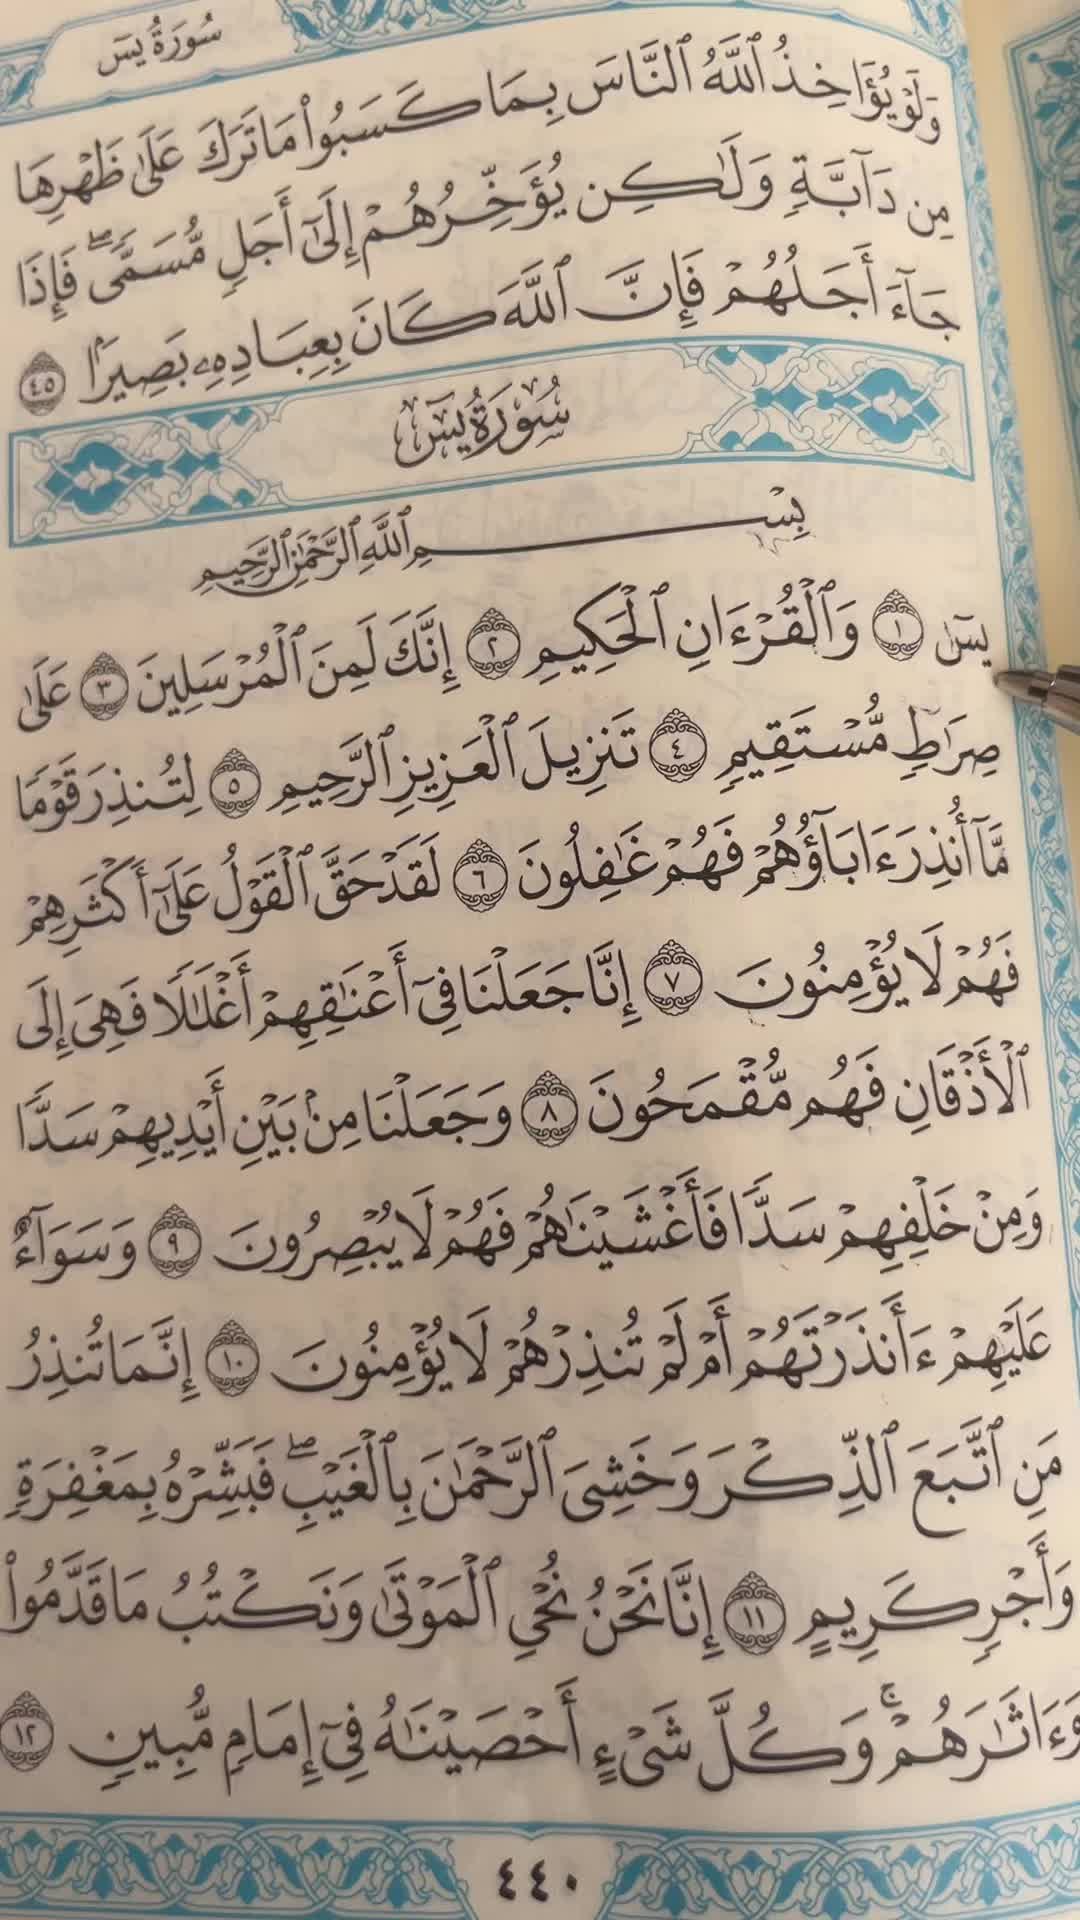 سُورَةُ يسٓ
وَلَوۡ يُؤَاخِذُ ٱللَّهُ ٱلنَّاسَ بِمَا كَسَبُواْ مَا تَرَكَ عَلَىٰ ظَهۡرِهَا
مِن دَآبَّةٖ وَلَٰكِن يُؤَخِّرُهُمۡ إِلَىٰٓ أَجَلٖ مُّسَمّٗىۖ فَإِذَا
جَآءَ أَجَلُهُمۡ فَإِنَّ ٱللَّهَ كَانَ بِعِبَادِهِۦ بَصِيرَۢا ٤٥
سُورَةُ يسٓ
بِسۡمِ ٱللَّهِ ٱلرَّحۡمَٰنِ ٱلرَّحِيمِ
يسٓ ١ وَٱلۡقُرۡءَانِ ٱلۡحَكِيمِ ٢ إِنَّكَ لَمِنَ ٱلۡمُرۡسَلِينَ ٣ عَلَىٰ
صِرَٰطٖ مُّسۡتَقِيمٖ ٤ تَنزِيلَ ٱلۡعَزِيزِ ٱلرَّحِيمِ ٥ لِتُنذِرَ قَوۡمٗا
مَّآ أُنذِرَ ءَابَآؤُهُمۡ فَهُمۡ غَٰفِلُونَ ٦ لَقَدۡ حَقَّ ٱلۡقَوۡلُ عَلَىٰٓ أَكۡثَرِهِمۡ
فَهُمۡ لَا يُؤۡمِنُونَ ٧ إِنَّا جَعَلۡنَا فِيٓ أَعۡنَٰقِهِمۡ أَغۡلَٰلٗا فَهِيَ إِلَى
ٱلۡأَذۡقَانِ فَهُم مُّقۡمَحُونَ ٨ وَجَعَلۡنَا مِنۢ بَيۡنِ أَيۡدِيهِمۡ سَدّٗا
وَمِنۡ خَلۡفِهِمۡ سَدّٗا فَأَغۡشَيۡنَٰهُمۡ فَهُمۡ لَا يُبۡصِرُونَ ٩ وَسَوَآءٌ
عَلَيۡهِمۡ ءَأَنذَرۡتَهُمۡ أَمۡ لَمۡ تُنذِرۡهُمۡ لَا يُؤۡمِنُونَ ١٠ إِنَّمَا تُنذِرُ
مَنِ ٱتَّبَعَ ٱلذِّكۡرَ وَخَشِيَ ٱلرَّحۡمَٰنَ بِٱلۡغَيۡبِۖ فَبَشِّرۡهُ بِمَغۡفِرَةٖ
وَأَجۡرٖ كَرِيمٍ ١١ إِنَّا نَحۡنُ نُحۡيِ ٱلۡمَوۡتَىٰ وَنَكۡتُبُ مَا قَدَّمُواْ
وَءَاثَٰرَهُمۡۚ وَكُلَّ شَيۡءٍ أَحۡصَيۡنَٰهُ فِيٓ إِمَامٖ مُّبِينٖ ١٢
٤٤٠